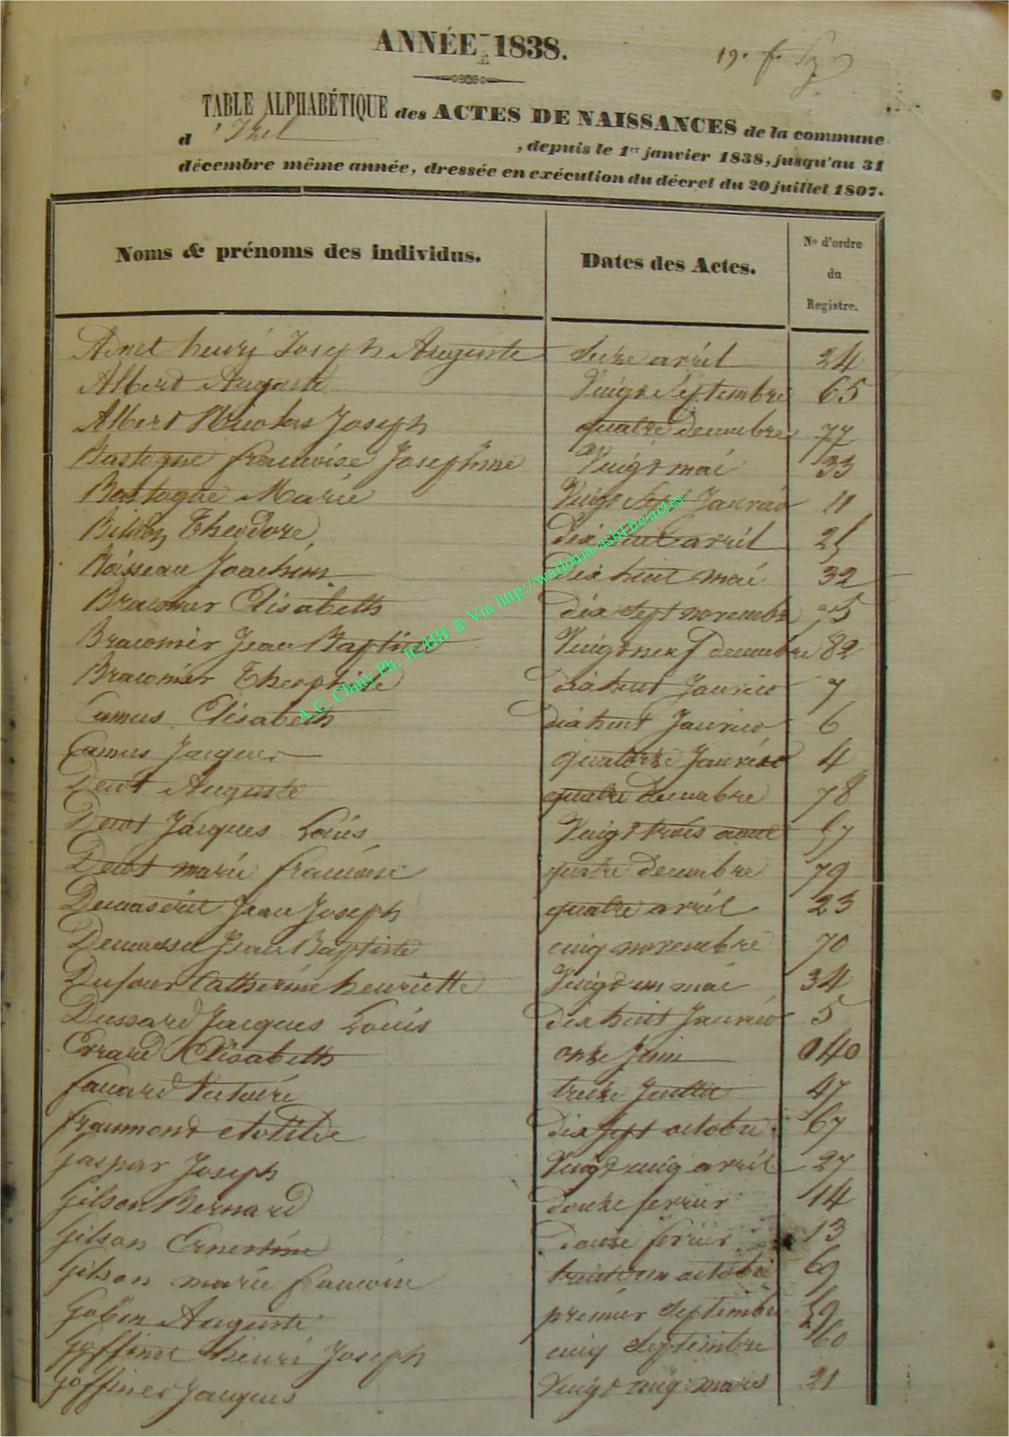 ANNÉE 1838.
19. f.
TABLE ALPHABÉTIQUE des ACTES DE NAISSANCES de la commune
d'Izel, depuis le 1er janvier 1838, jusqu'au 31
décembre même année, dressée en exécution du décret du 20 juillet 1807.
Noms & prénoms des individus. Dates des Actes. No d'ordre du Registre.
Adnet henri Joseph Auguste Seize avril 24
Albert Auguste Vingt Septembre 65
Albert Nicolas Joseph quatre decembre 77
Bastogne francoise Josephine Vingt mai 33
Bastogne Marie Vingt Sept Janvier 11
Theodore dix huit avril
Boisseau Joachim dix huit mai 32
Braconier Elisabeth dix sept novembre 75
Braconier Jean Baptiste Vingt neuf decembre 82
Braconier Theophile dix huit Janvier 7
Camus Elisabeth dix huit Janvier 6
Camus Jacques quatorze Janvier 4
Deut Auguste quatre decembre 78
Deut Jacques Louis Vingt trois aout 57
Deut marie francoise quatre decembre 79
Jean Joseph quatre avril 23
Jean Baptiste cinq novembre 70
Dufour Catherine henriette Vingt un mai 34
Dussard Jacques Louis dix huit Janvier 5
Errard Elisabeth onze Juin 40
fanard Victoire treize Juillet 47
fraumont Clotilde dix sept octobre 67
gaspar Joseph Vingt cinq avril 27
Gilson Bernard douze fevrier 14
Gilson Ernestine douze fevrier 13
Gilson marie francoise trente un octobre 69
Gobin Auguste premier Septembre 59
Goffinet henri Joseph cinq Septembre 60
Goffinet Jacques Vingt cinq mars 21
A.C. Chiny Ph. JC-HB ® Via http://wallonia-asbl.be/actes